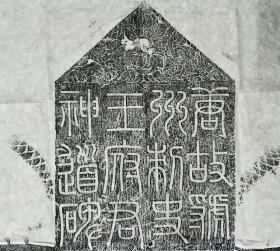 唐故虢
州刺史
王府君
神道碑